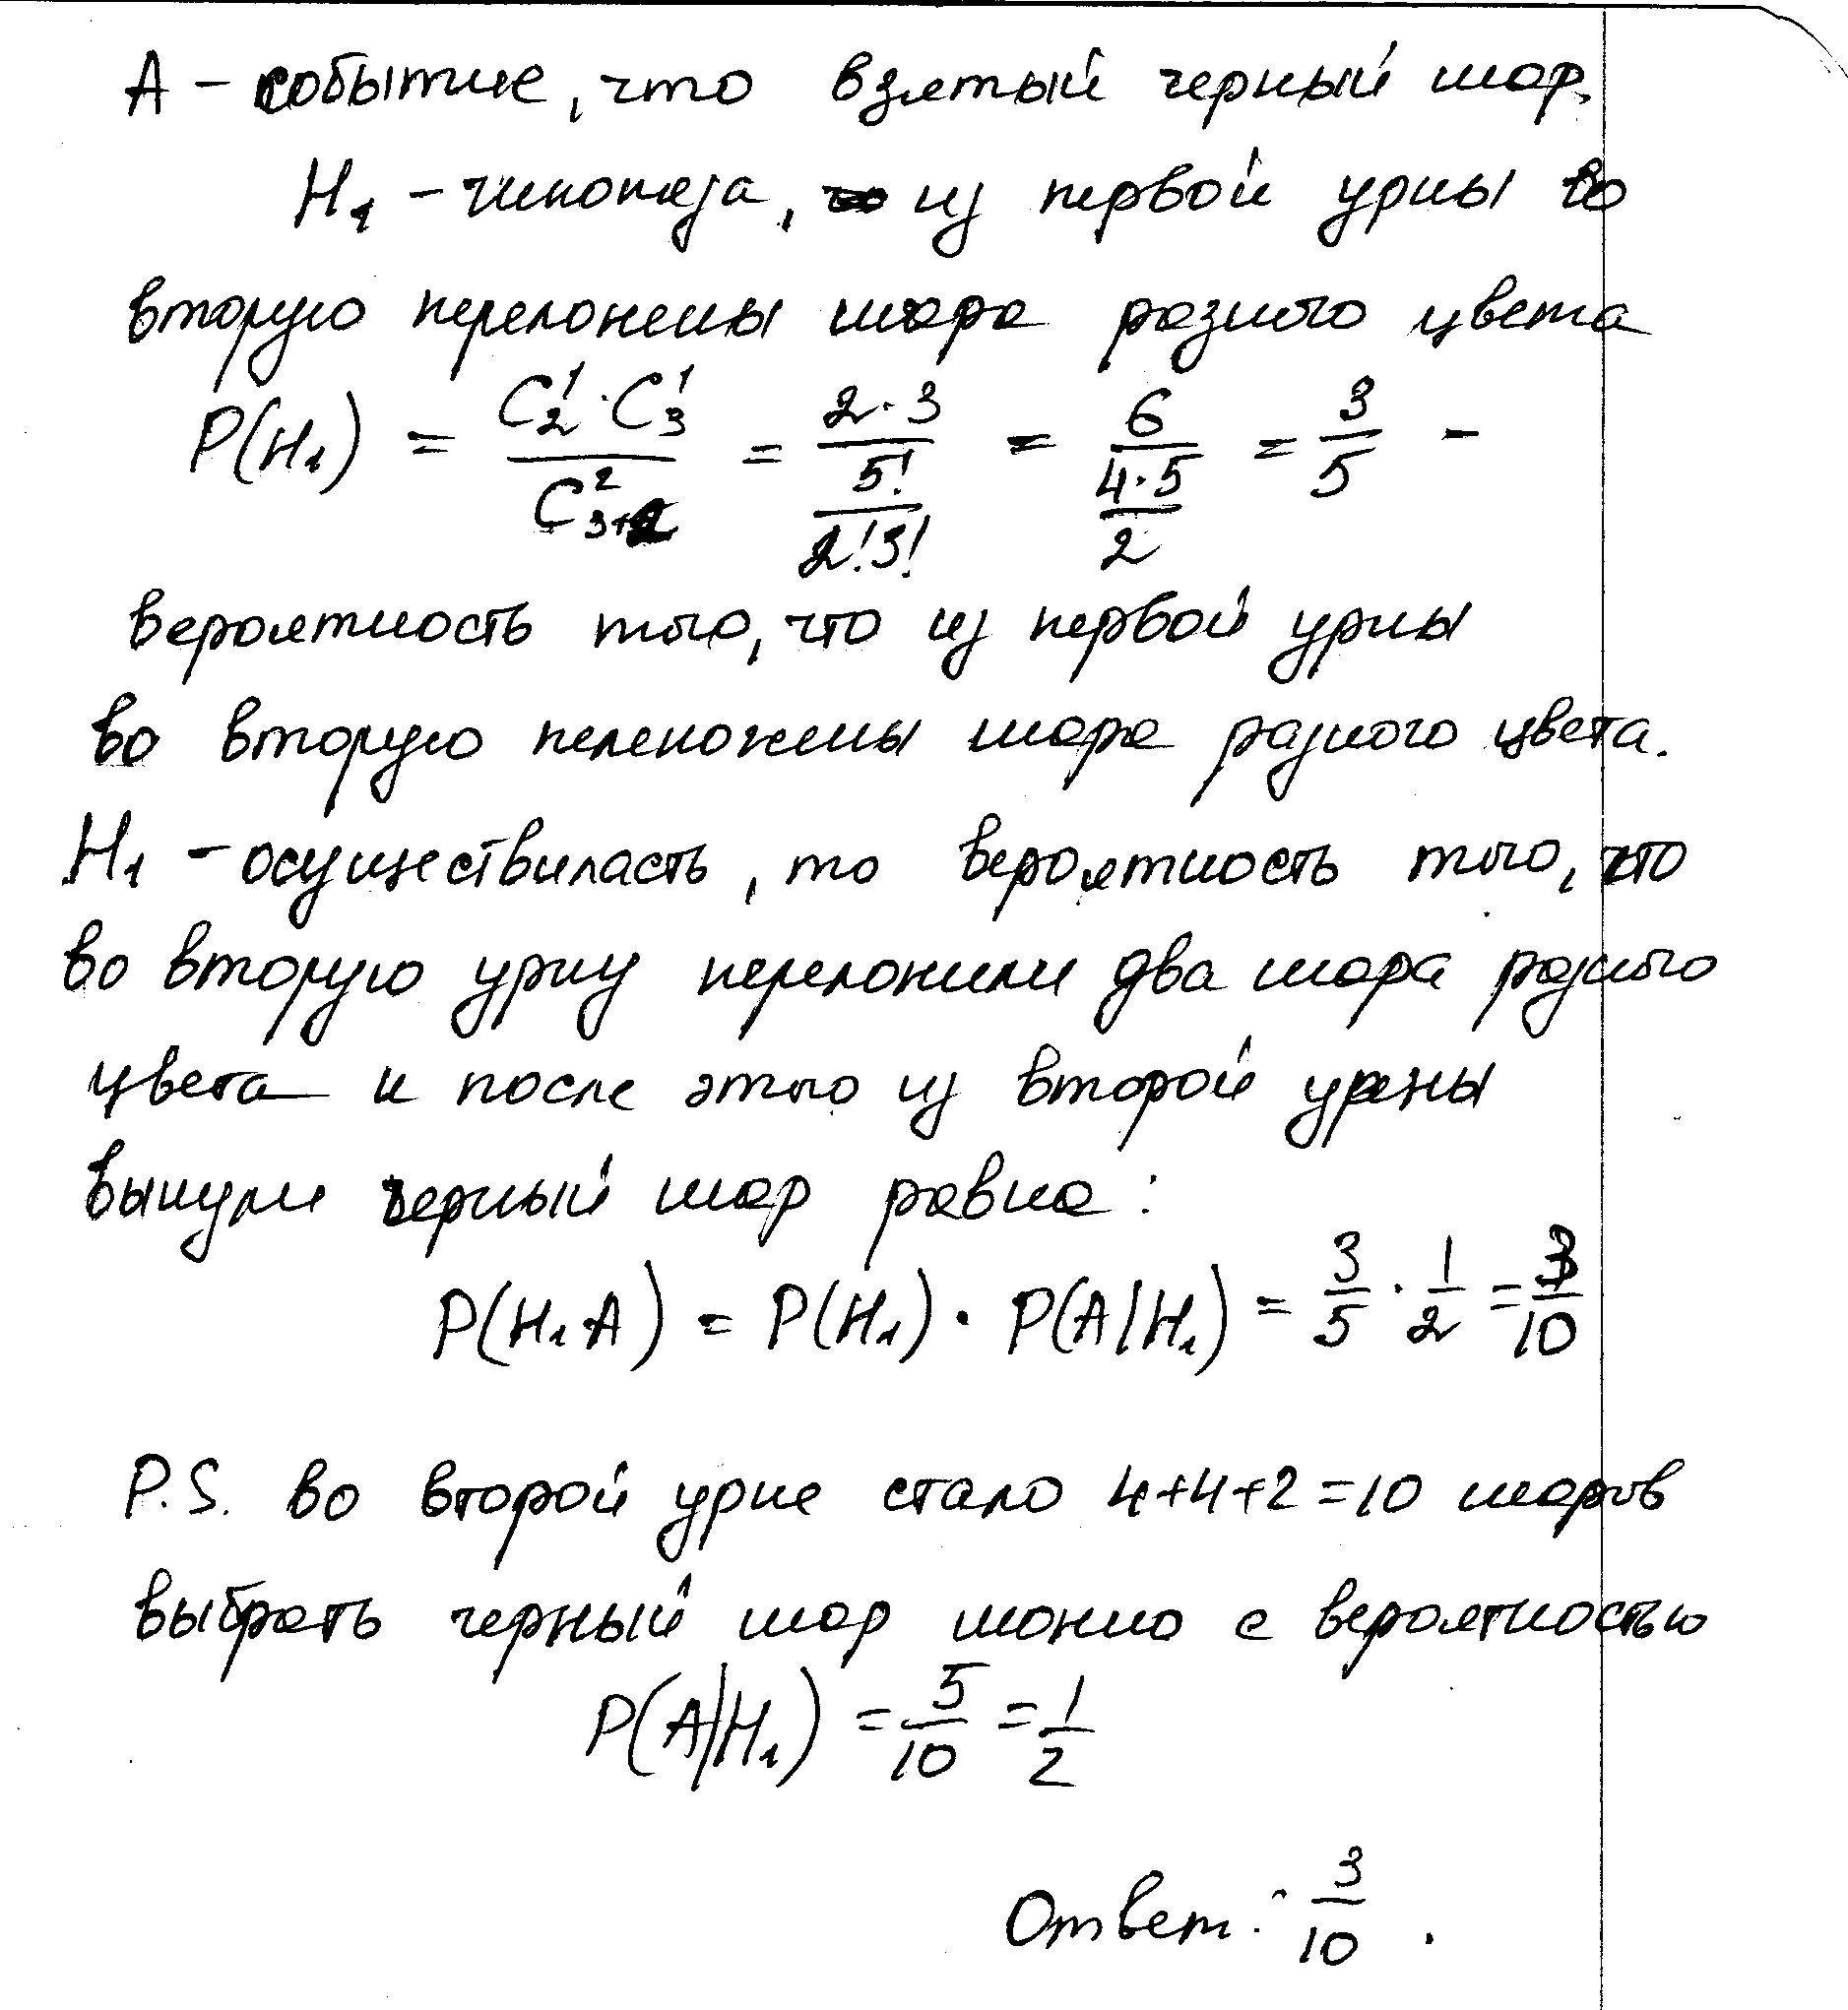 А – событие, что взятый черный шар.
H₁ – гипотеза, из первой урны во
вторую переложены шара разного цвета
P(H₁) = \frac{C_2^1 · C_3^1}{C_{3+2}^2} = \frac{2·3}{\frac{5!}{2!3!}} = \frac{6}{\frac{4·5}{2}} = \frac{3}{5} –
вероятность того, что из первой урны
во вторую пелеложены шара разного цвета.
H₁ – осуществиласть, то вероятность того, что
во вторую урну переложили два шара разного
цвета и после этого из второй урны
вынули черный шар равна:
P(H₁A) = P(H₁) · P(A|H₁) = \frac{3}{5} · \frac{1}{2} = \frac{3}{10}
P.S. во второй урне стало 4+4+2=10 шаров
выбрать черный шар можно с вероятностью
P(A|H₁) = \frac{5}{10} = \frac{1}{2}
Ответ: \frac{3}{10} .